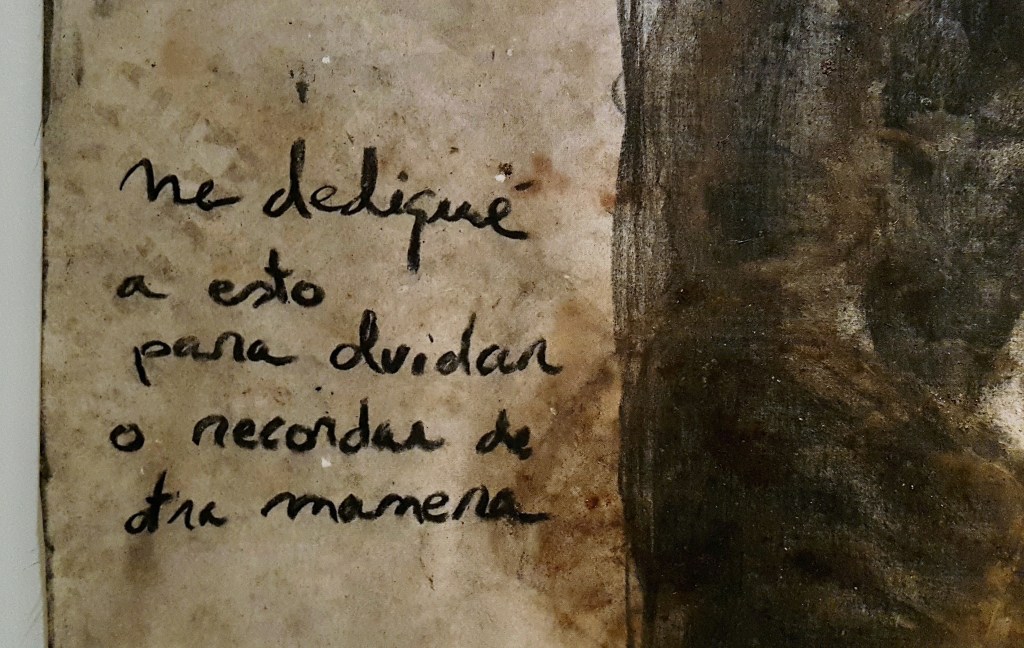 me dediqué
a esto
para olvidar
o recordar de
otra manera